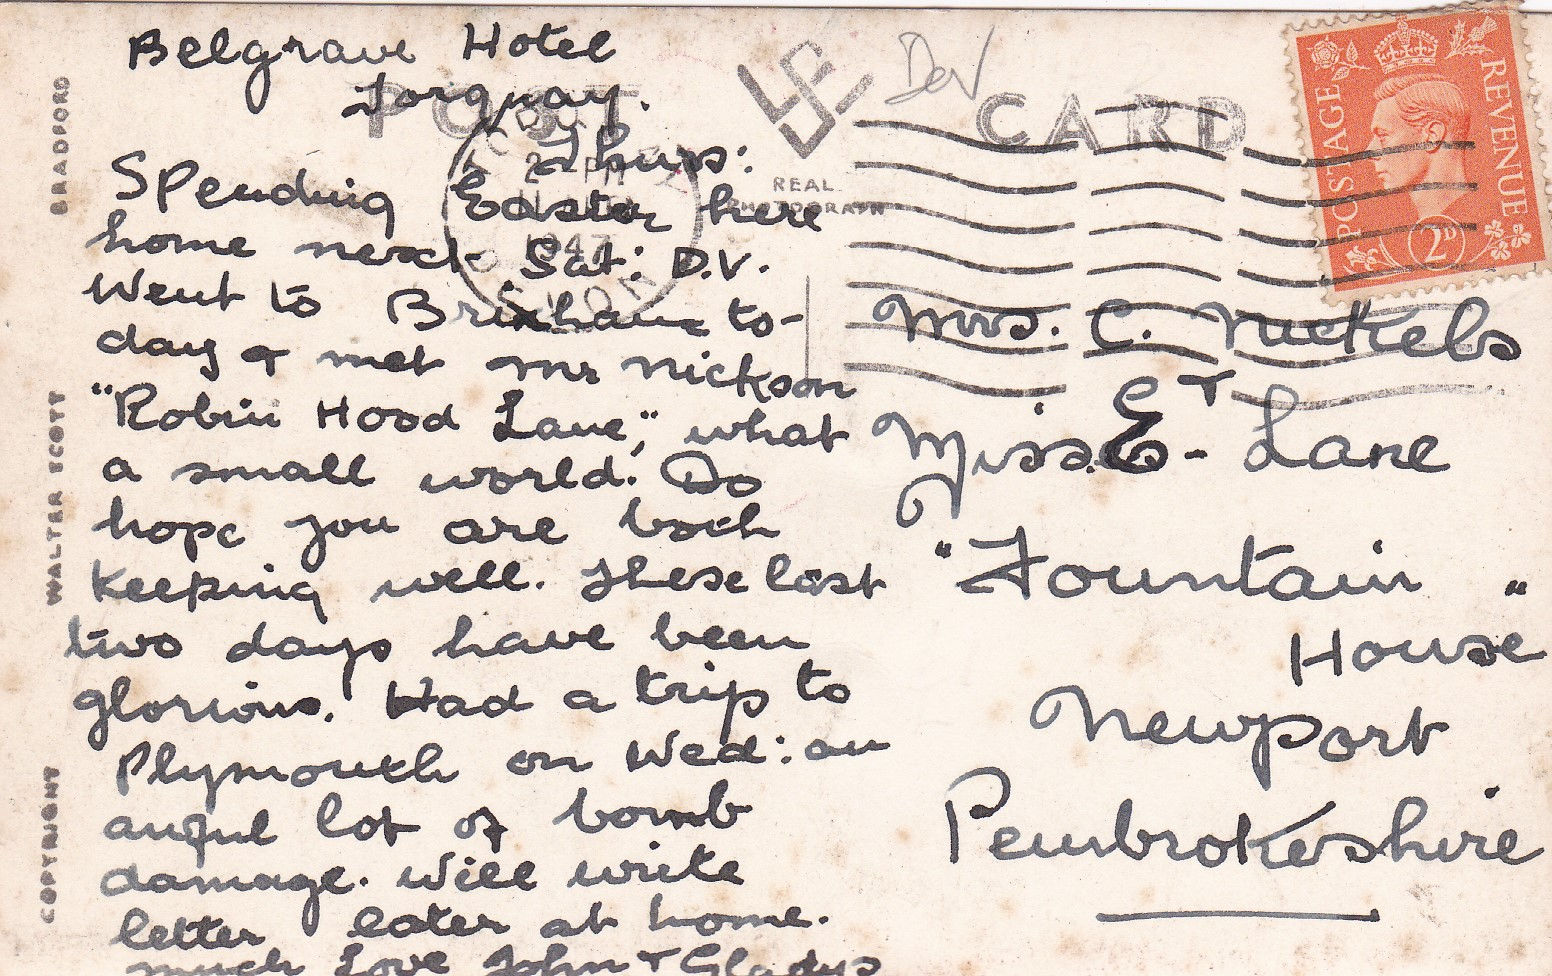 Belgrave Hotel
Torquay.
Thurs:
Spending Easter here
home next Sat: D.V.
Went to Brixham to-
day & met Mr Nickson
"Robin Hood Lane", what
a small world. Do
hope you are both
keeping well. These last
two days have been
glorious. Had a trip to
Plymouth on Wed: an
awful lot of bomb
damage. Will write
letter later at home.
much Love John & Gladys
POST CARD
Dev
REAL
PHOTOGRAPH
TORQUAY
1947
DEVON
POSTAGE
REVENUE
2D
Mrs. C. Nickels
&
Miss E. Lane
"Fountain"
House
Newport
Pembrokeshire
COPYRIGHT WALTER SCOTT BRADFORD